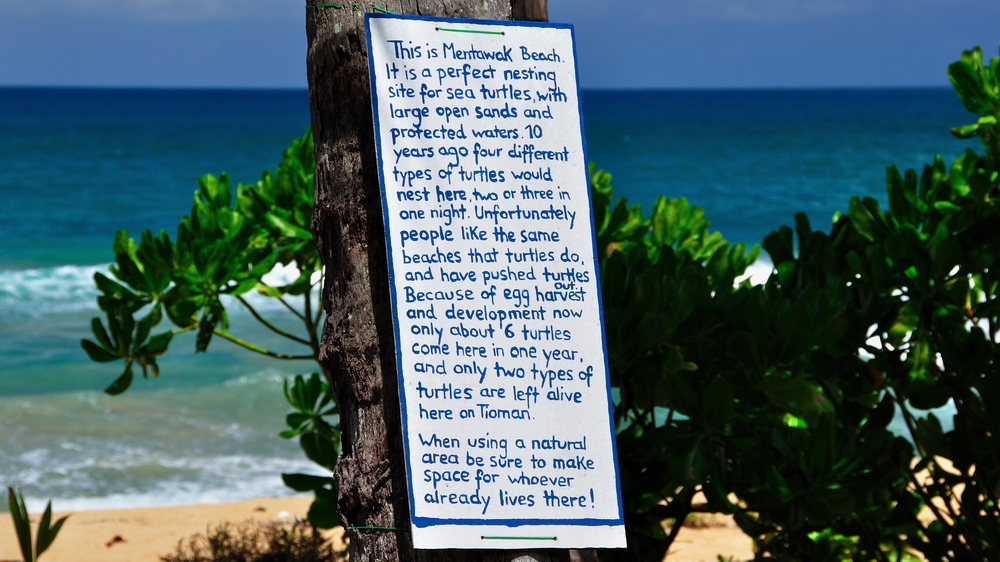 This is Mentawak Beach.
It is a perfect nesting
site for sea turtles, with
large open sands and
protected waters. 10
years ago four different
types of turtles would
nest here, two or three in
one night. Unfortunately
people like the same
beaches that turtles do,
and have pushed turtles
out.
Because of egg harvest
and development now
only about 6 turtles
come here in one year,
and only two types of
turtles are left alive
here on Tioman.
When using a natural
area be sure to make
space for whoever
already lives there!